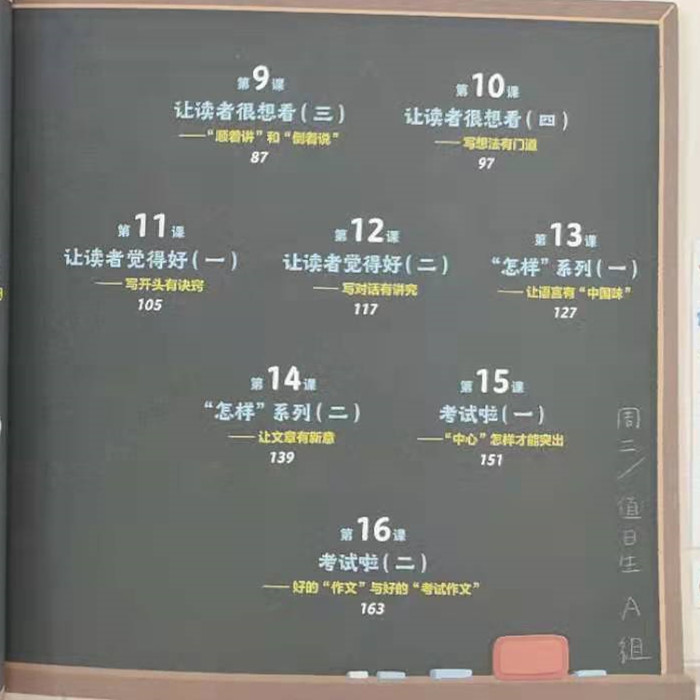 第9课
让读者很想看(三)
——“顺着讲”和“倒着说”
87
第10课
让读者很想看(四)
——写想法有门道
97
第11课
让读者觉得好(一)
——写开头有诀窍
105
第12课
让读者觉得好(二)
——写对话有讲究
117
第13课
“怎样”系列(一)
——让语言有“中国味”
127
第14课
“怎样”系列(二)
——让文章有新意
139
第15课
考试啦(一)
——“中心”怎样才能突出
151
第16课
考试啦(二)
——好的“作文”与好的“考试作文”
163
周二/值日生 A组